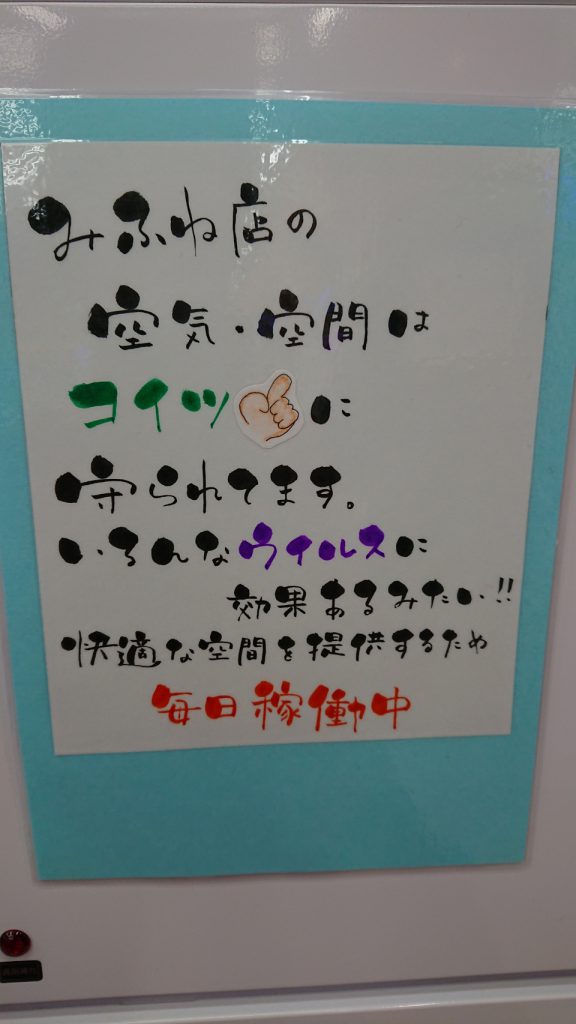 みふね店の
空気・空間は
コイツに
守られてます。
いろんなウイルスに
効果あるみたい!!
快適な空間を提供するため
毎日稼働中